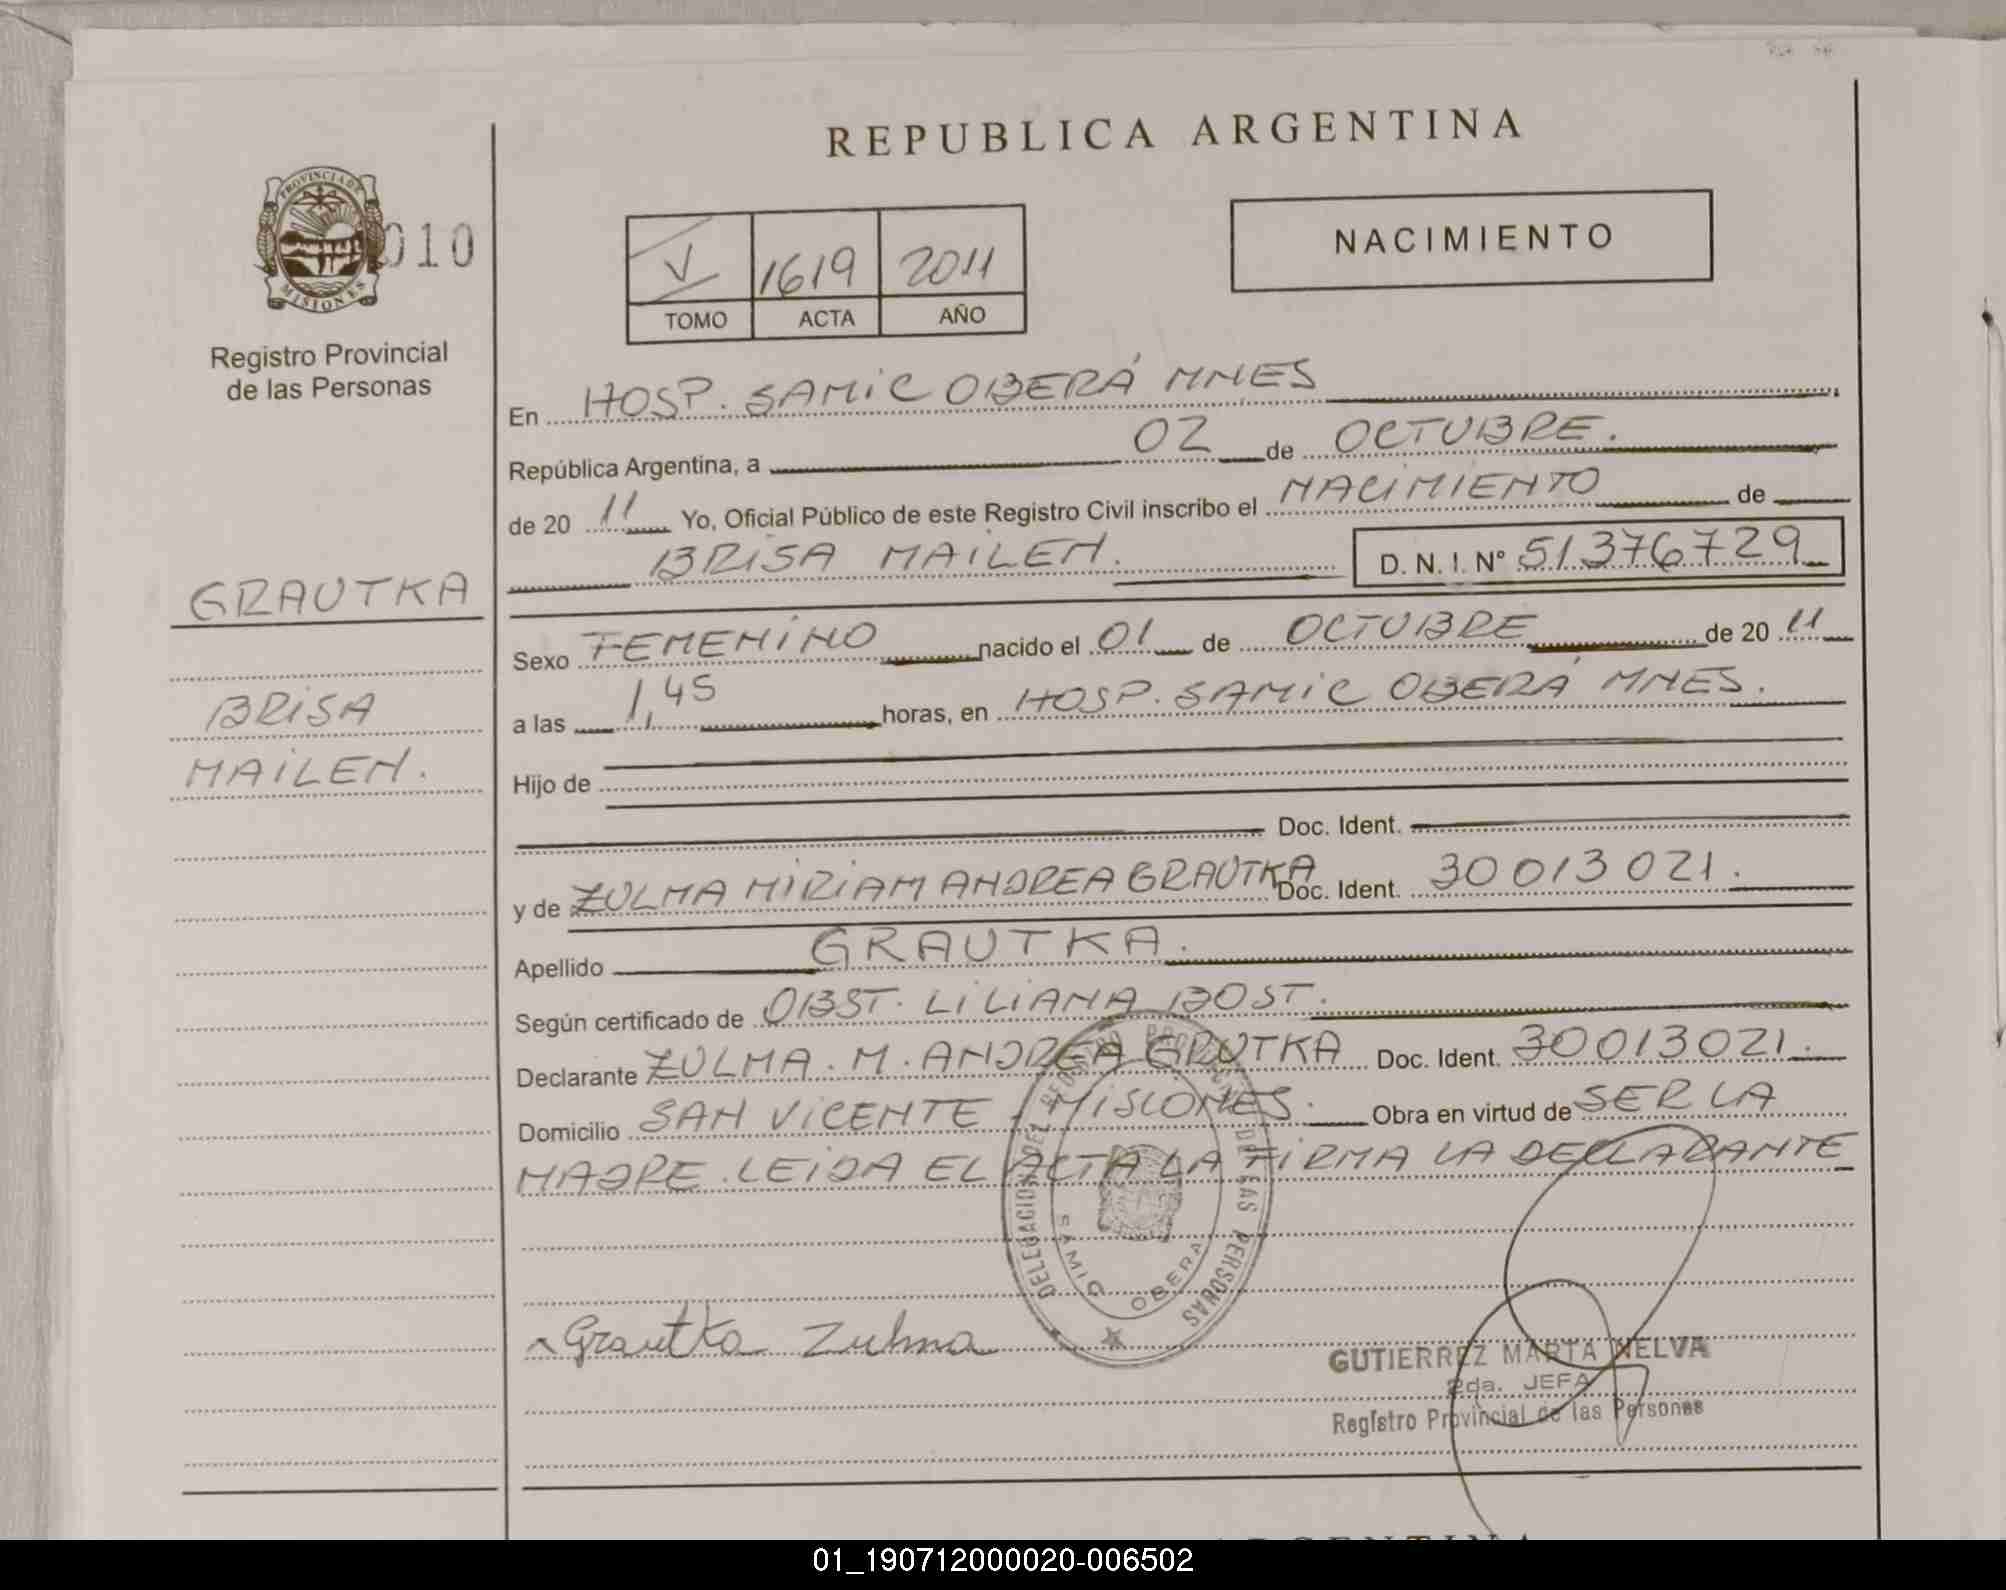 REPUBLICA ARGENTINA
PROVINCIA DE
MISIONES
010
Registro Provincial
de las Personas
NACIMIENTO
V 1619 2011
TOMO ACTA AÑO
En HOSP. SAMIC OBERÁ MNES
República Argentina, a 02 de OCTUBRE.
de 20 11 Yo, Oficial Público de este Registro Civil inscribo el NACIMIENTO de
BRISA MAILEN. D. N. I. Nº 51376729
GRAUTKA
BRISA
MAILEN.
Sexo FEMENINO nacido el 01 de OCTUBRE de 20 11
a las 1,45 horas, en HOSP. SAMIC OBERÁ MNES.
Hijo de
Doc. Ident.
y de ZULMA MIRIAM ANDREA GRAUTKA Doc. Ident. 30013021.
Apellido GRAUTKA.
Según certificado de OBST. LILIANA BOST.
Declarante ZULMA. M. ANDREA GRUTKA Doc. Ident. 30013021.
Domicilio SAN VICENTE - MISIONES. Obra en virtud de SER LA
MADRE. LEIDA EL ACTA LA FIRMA LA DECLARANTE
DELEGACION DEL REGISTRO PROVINCIAL DE LAS PERSONAS
SAMIC OBERA
Grautka Zulma
GUTIERREZ MARTA NELVA
2da. JEFA
Registro Provincial de las Personas
ARGENTINA
01_190712000020-006502